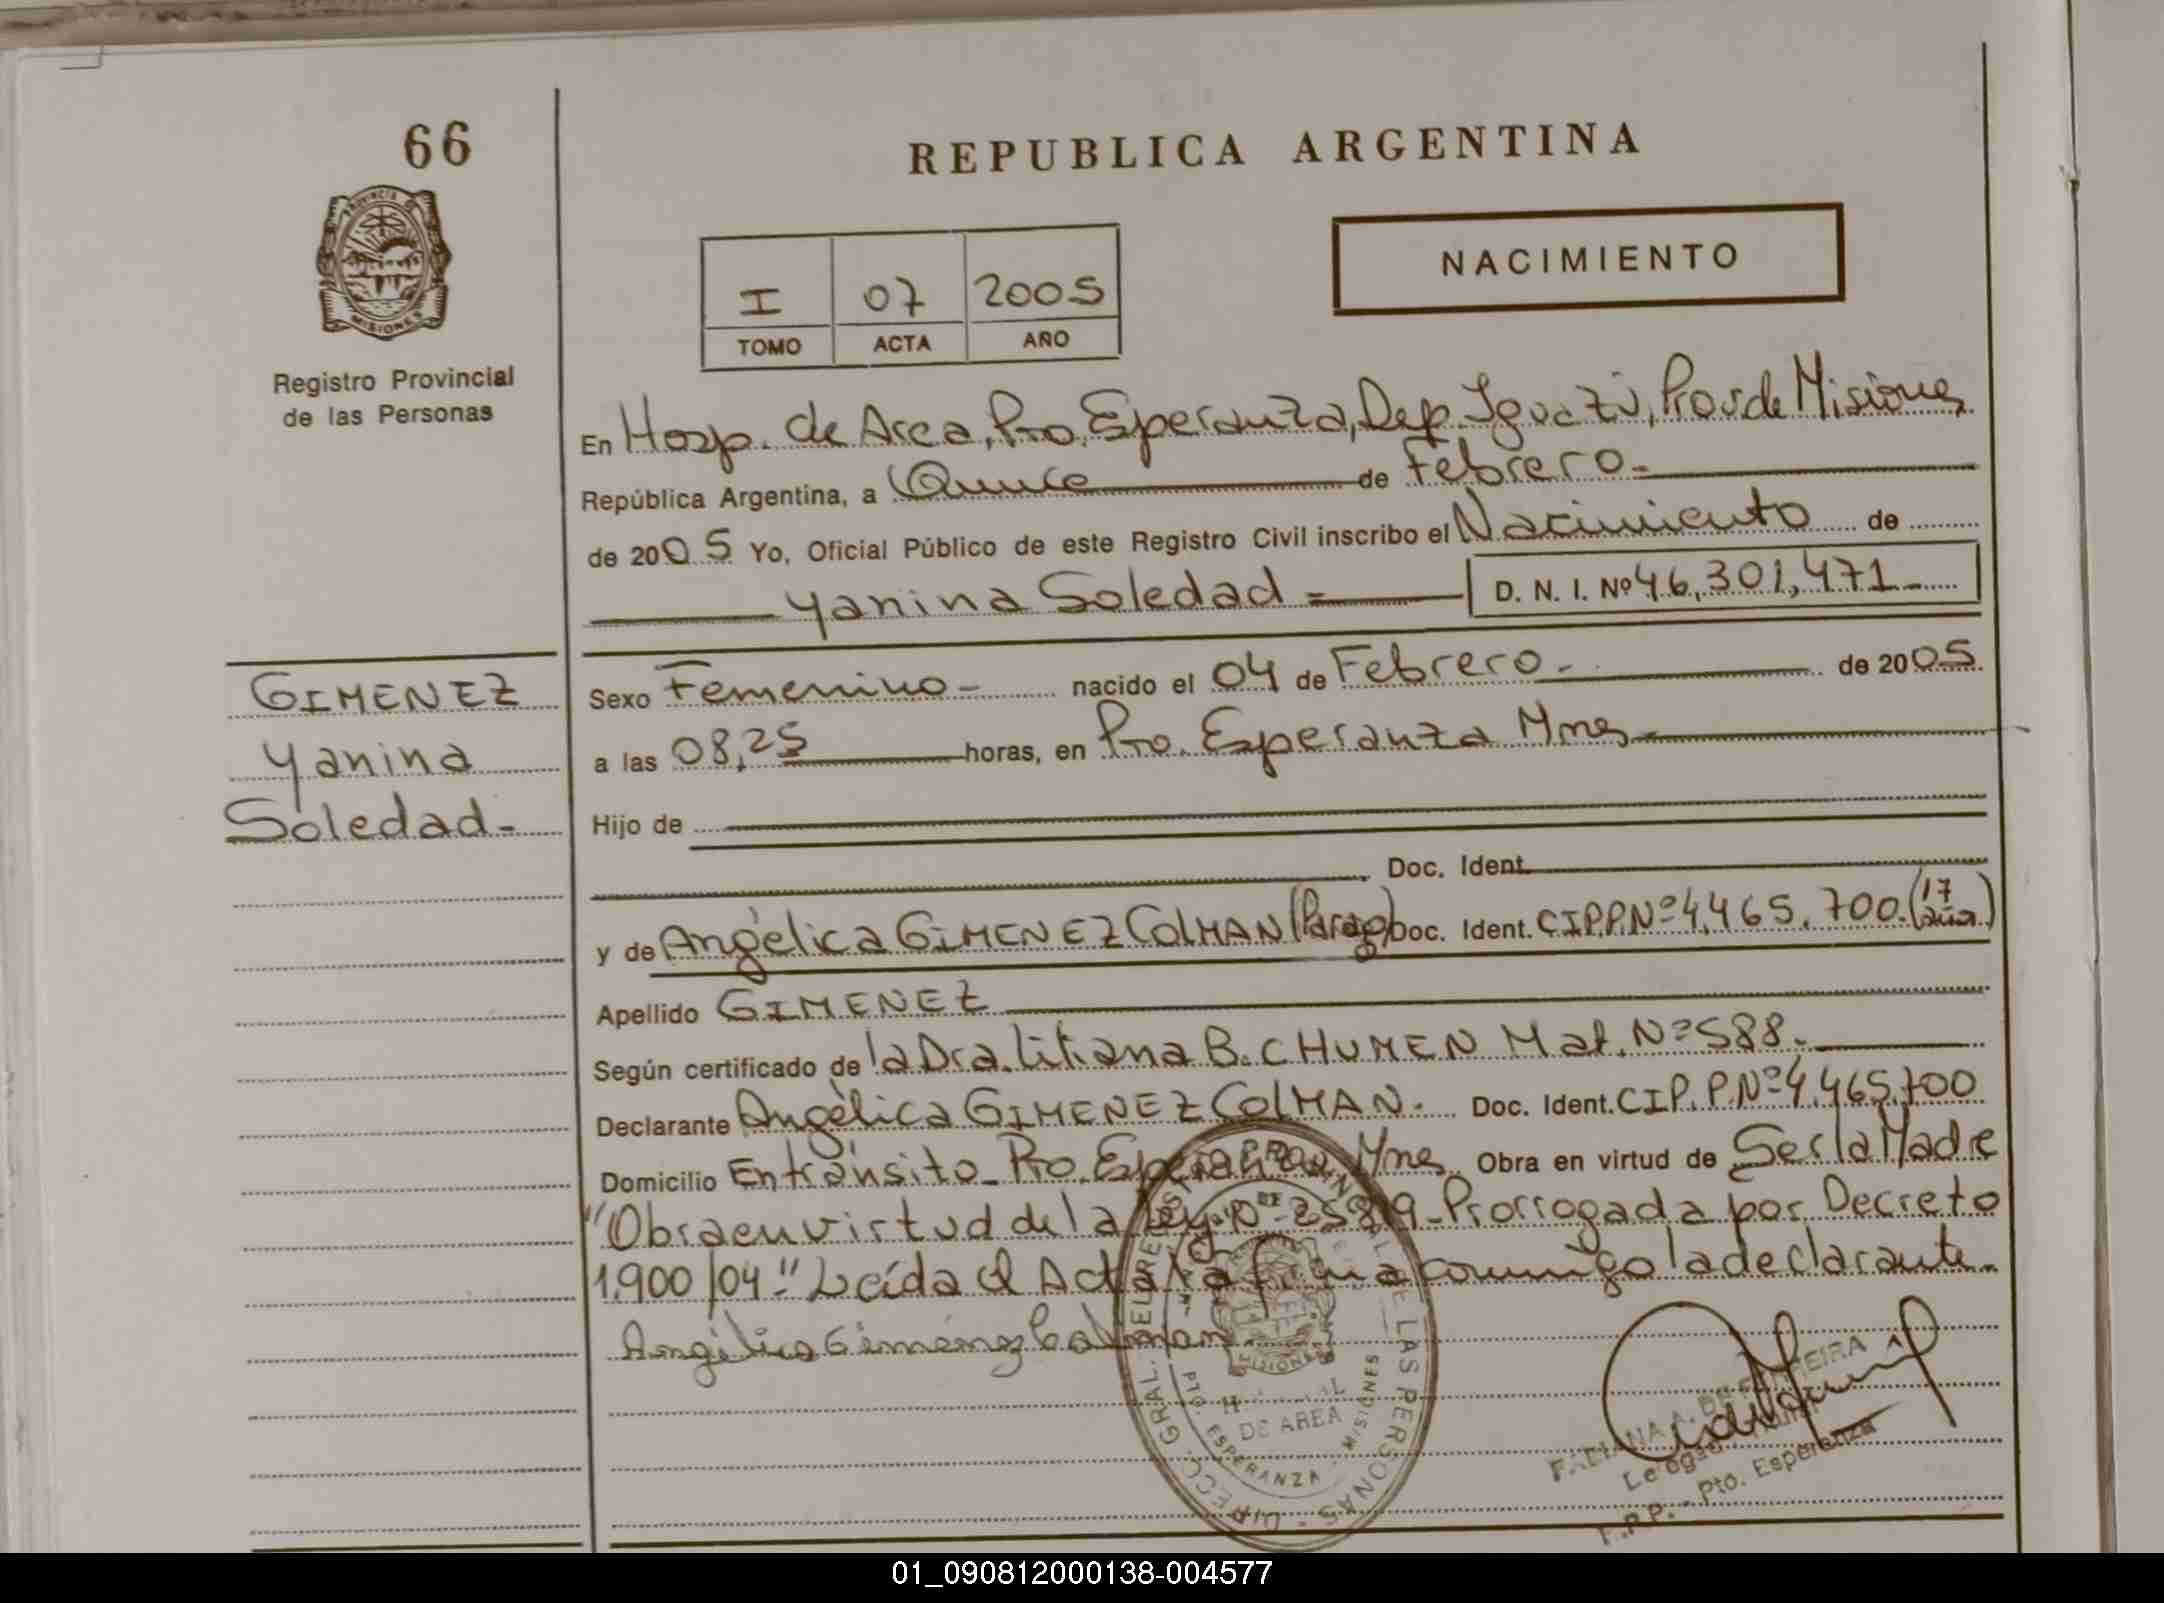 66
REPUBLICA ARGENTINA
PROVINCIA DE
MISIONES
Registro Provincial
de las Personas
NACIMIENTO
I 07 2005
TOMO ACTA AÑO
En Hosp. de Area, Pto. Esperanza, Dep. Iguazú, Prov de Misiones
República Argentina, a Quince de Febrero.-
de 2005 Yo, Oficial Público de este Registro Civil inscribo el Nacimiento de
Yanina Soledad = D. N. I. Nº 46,301,471-
GIMENEZ
Yanina
Soledad-
Sexo Femenino- nacido el 04 de Febrero.- de 2005
a las 08,25 horas, en Pto. Esperanza Mnes-
Hijo de
Doc. Ident.
y de Angélica GIMENEZ COLMAN (Parag) Doc. Ident. CIP.P.Nº 4,465.700.(17 años.)
Apellido GIMENEZ
Según certificado de la Dra. Liliana B. CHUMEN Mat. Nº 588.-
Declarante Angélica GIMENEZ COLMAN. Doc. Ident. CIP.P.Nº 4,465,700
Domicilio En tránsito- Pto. Esperanza Mnes Obra en virtud de Ser la Madre
"Obra en virtud de la Ley Nº 25819- Prorrogada por Decreto
1.900/04." Leída el Acta la firma conmigo la declarante.
Angélica Gimenez Colman
DIRECC. GRAL. DEL REGISTRO PROVINCIAL DE LAS PERSONAS
MISIONES
DE AREA
PTO. ESPERANZA - MISIONES
FABIANA A. DE
Pto. Esperanza
01_090812000138-004577